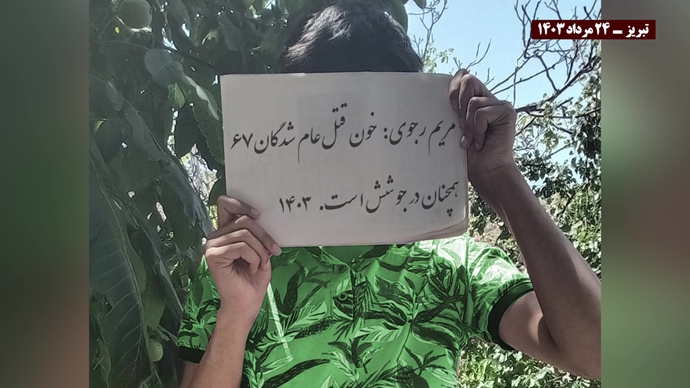 تبریز ـ ۲۴ مرداد ۱۴۰۳
مریم رجوی: خون قتل عام شدگان ۶۷
همچنان در جوشش است. ۱۴۰۳